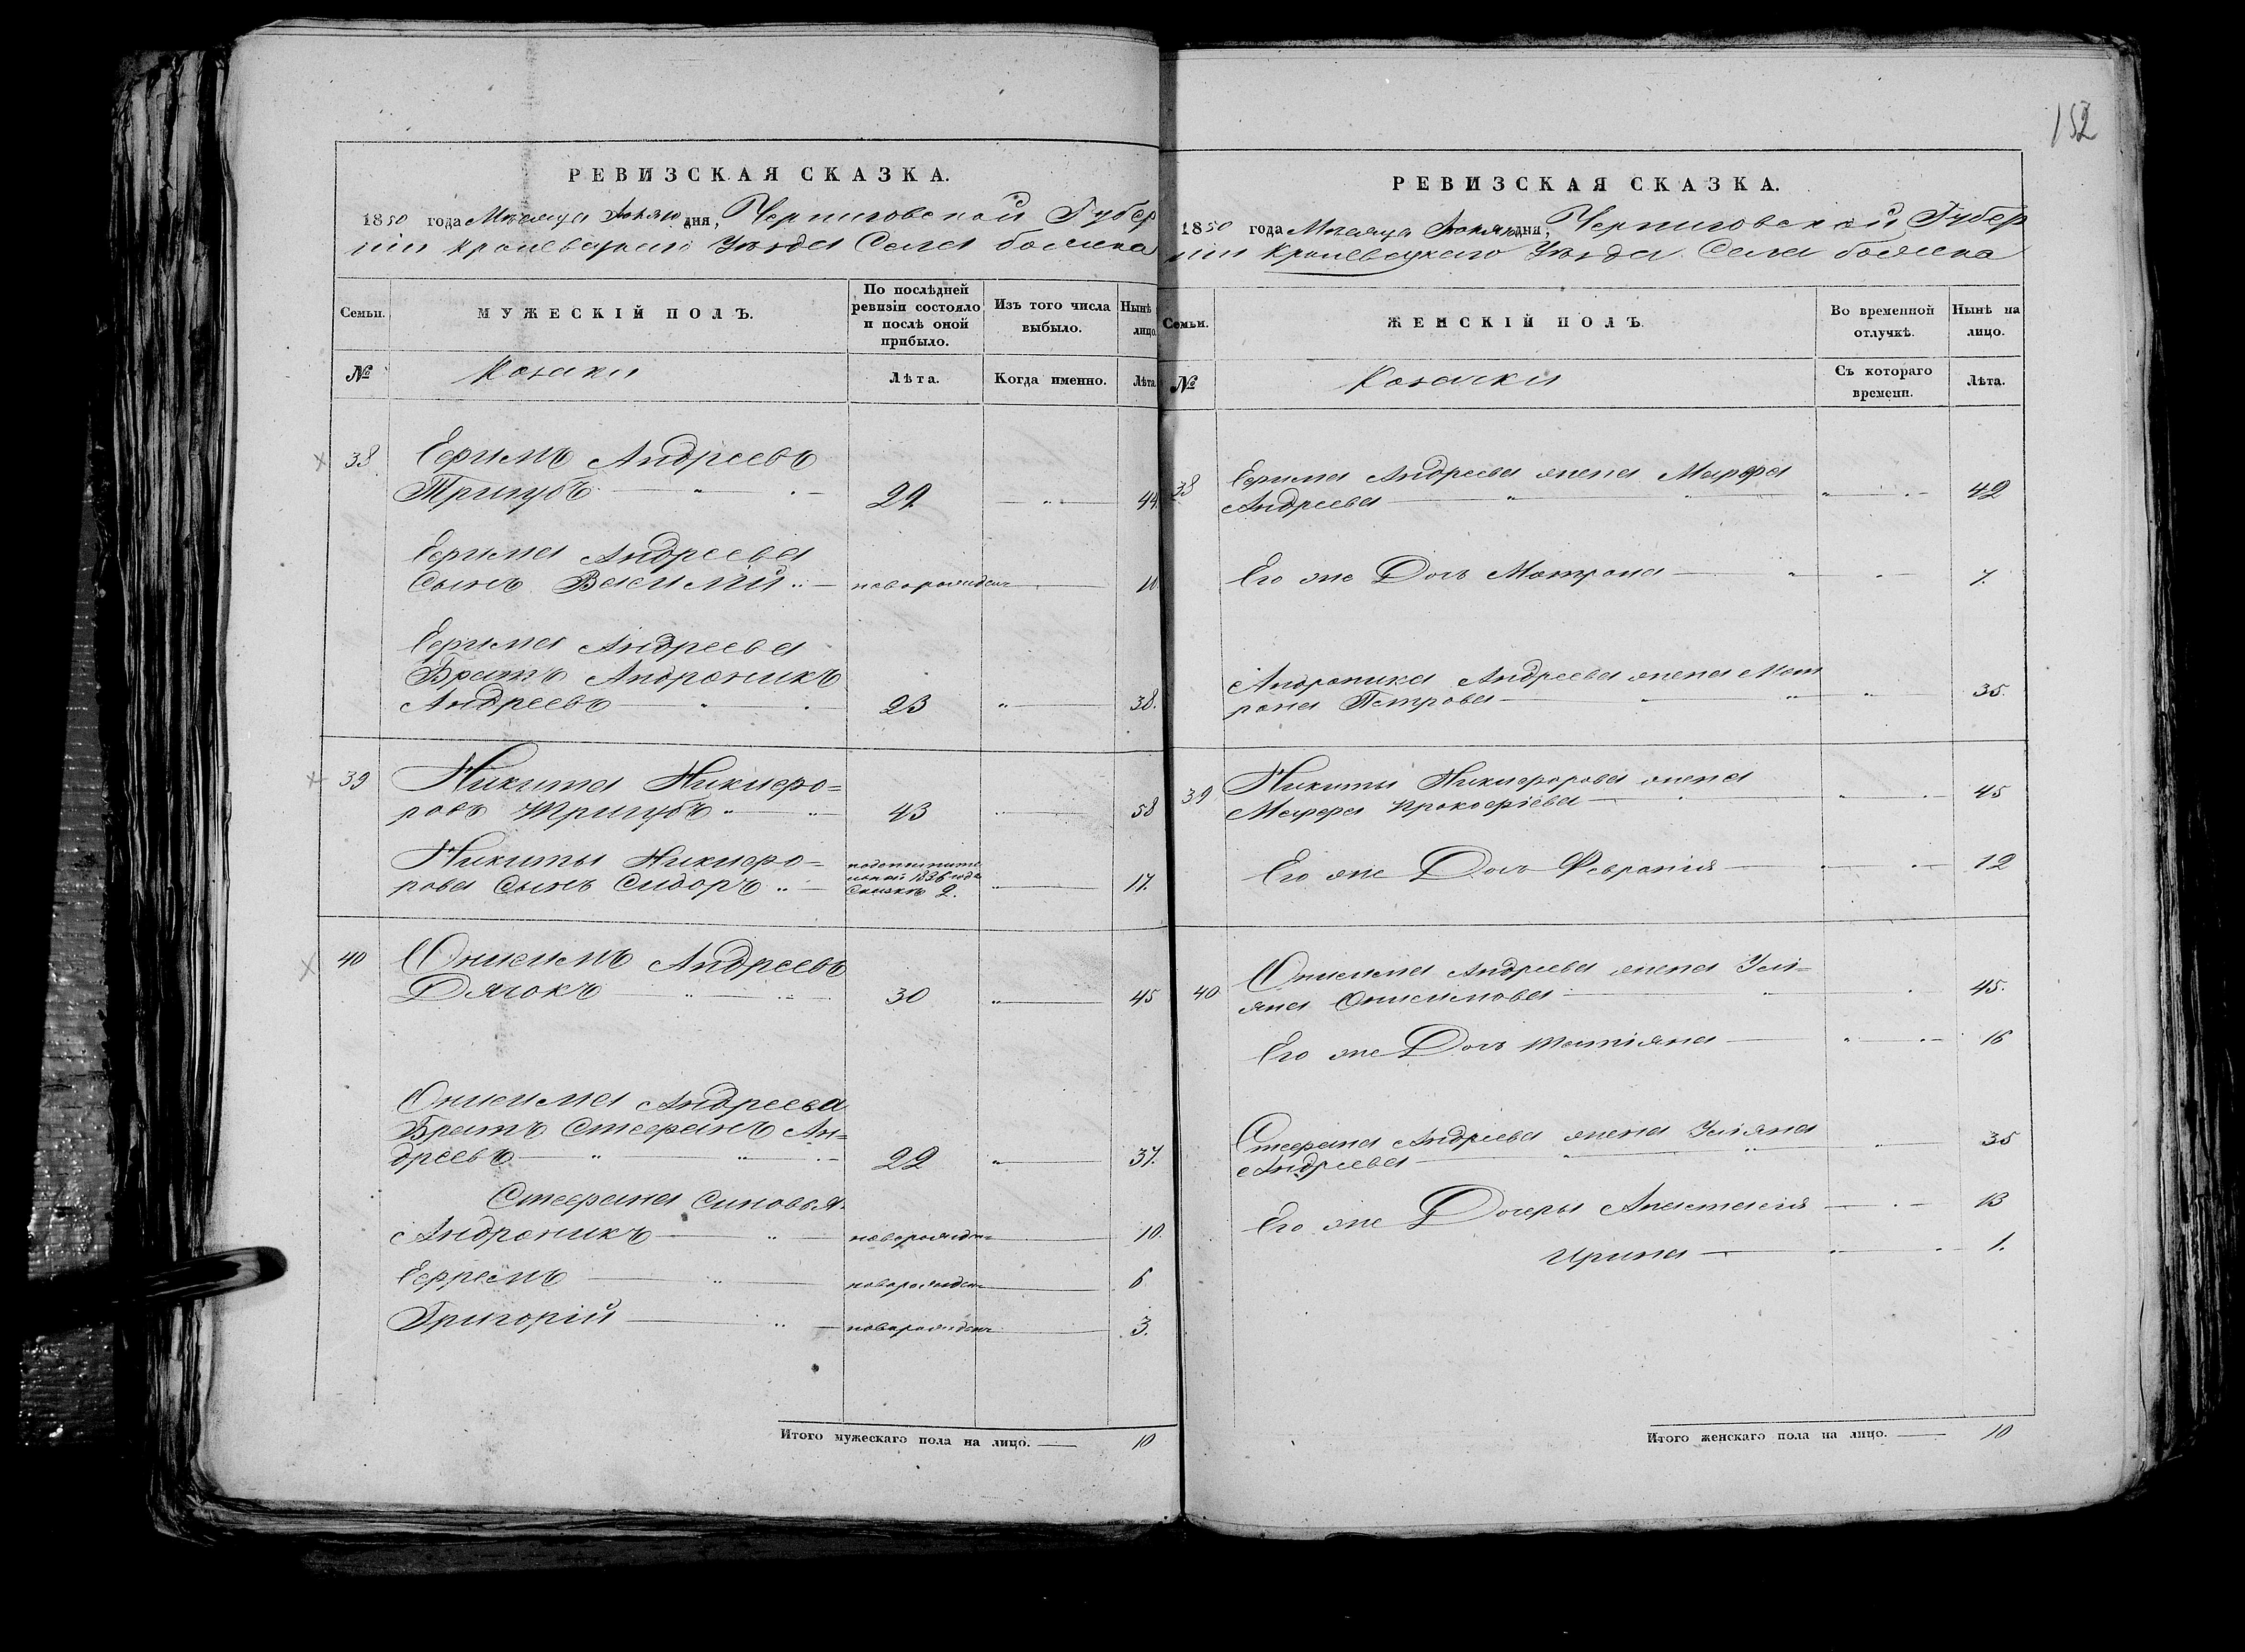 152
РЕВИЗСКАЯ СКАЗКА.
1850 года Мѣсяца дня, Черниговской Губер
ніи Кролевецкаго Уѣзда Села
Семьи.
МУЖЕСКІЙ ПОЛЪ.
По послѣдней ревизіи состояло и послѣ оной прибыло.
Изъ того числа выбыло.
Нынѣ лицо.
№
Козаки
Лѣта.
Когда именно.
Лѣта.
38 Ефимъ Андреевъ
Тригубъ 29 44
Ефима Андреева
Сынъ Василій новорожден 10
Ефима Андреева
Братъ Андроникъ
Андреевъ 23 38.
39 Никита Никифо=
ровъ Тригубъ 43 58
Никиты Никифо=
рова Сынъ Сидоръ 1836 года Сказкѣ 2. 17.
40 Онисимъ Андреевъ
Дягокъ 30 45
Онисима Андреева
Братъ Стефанъ Ан=
дреевъ 22 37.
Стефана Синовья
Андроникъ новорожден 10.
Ефремъ новорожден 6
Григорій новорожден 3.
Итого мужескаго пола на лицо. 10
РЕВИЗСКАЯ СКАЗКА.
1850 года Мѣсяца дня, Черниговской Губер
ніи Кролевецкаго Уѣзда Села
Семьи.
ЖЕНСКІЙ ПОЛЪ.
Во временной отлучкѣ.
Нынѣ на лицо.
№
Козачки
Съ котораго времени.
Лѣта.
38 Ефима Андреева жена Марфа
Андреева 42
Его же Дочь Матрона 7.
Андроника Андреева жена Мат
рона Петрова 35.
39 Никиты Никифорова жена
Марфа Прокофіева 45
Его же Дочь Февронія 12
40 Онисима Андреева жена Улі=
яна Онисимова 45.
Его же Дочь Татіяна 16
Стефана Андреева жена Уліяна
Андреева 35
Его же Дочеры Анастасія 13
Ирина 1.
Итого женскаго пола на лицо. 10